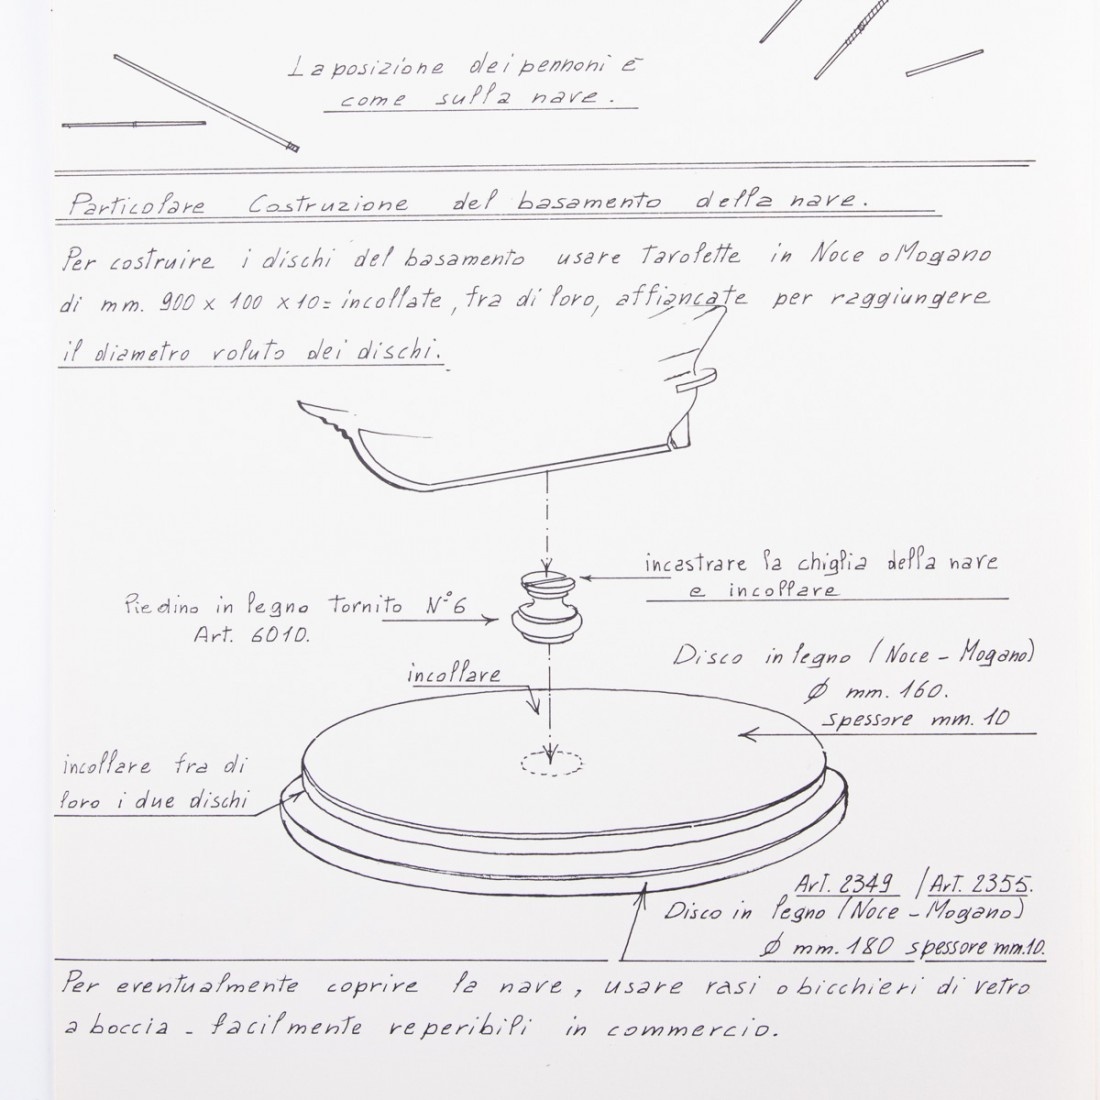 La posizione dei pennoni è
come sulla nave.
Particolare Costruzione del basamento della nave.
Per costruire i dischi del basamento usare Tavolette in Noce o Mogano
di mm. 900 x 100 x 10= incollate, fra di loro, affiancate per raggiungere
il diametro voluto dei dischi.
incastrare la chiglia della nave
e incollare
Piedino in legno Tornito N° 6
Art. 6010.
Disco in legno (Noce - Mogano)
Ø mm. 160.
spessore mm. 10
incollare
incollare fra di
loro i due dischi
Art. 2349 / Art. 2355.
Disco in legno (Noce - Mogano)
Ø mm. 180 spessore mm. 10.
Per eventualmente coprire la nave, usare rasi o bicchieri di vetro
a boccia - facilmente reperibili in commercio.